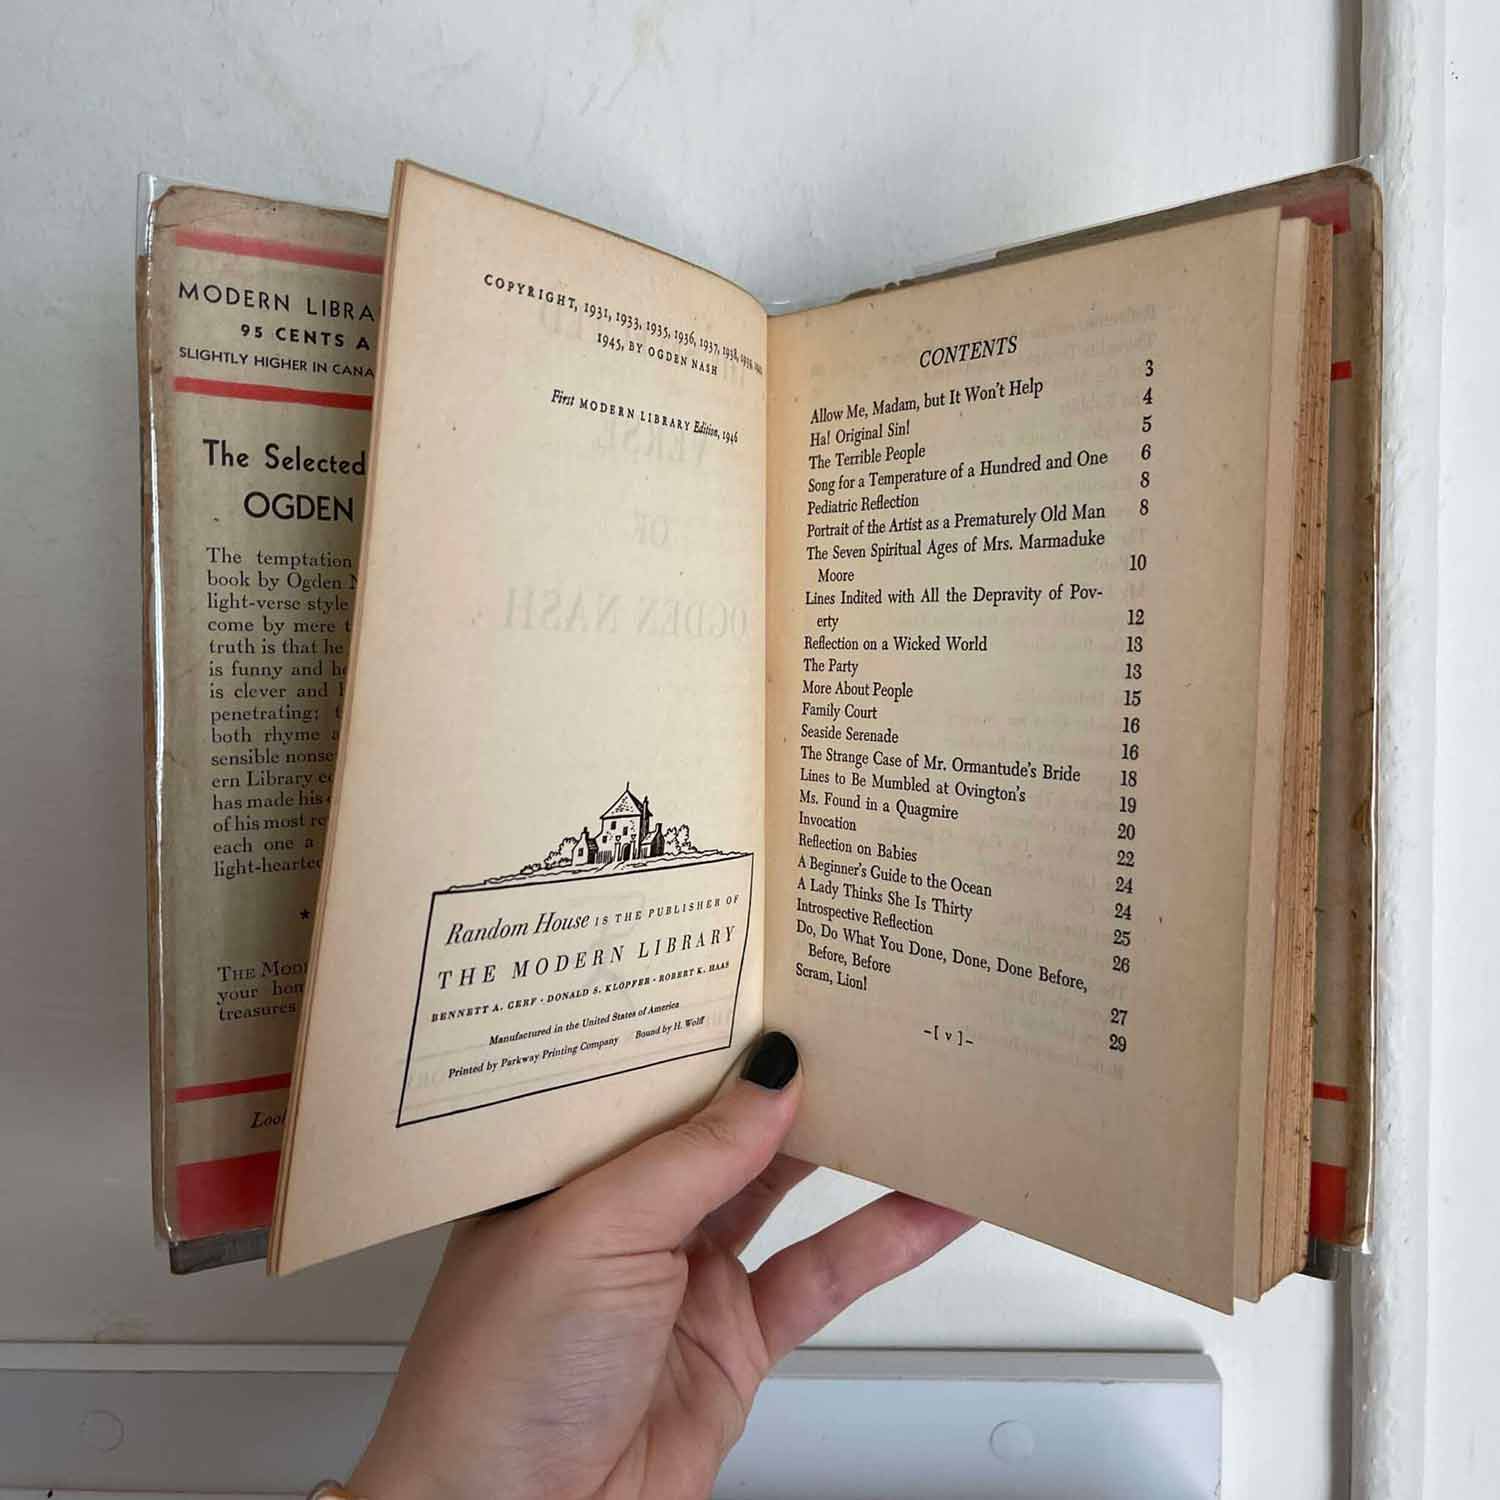 MODERN LIBRA
95 CENTS A
SLIGHTLY HIGHER IN CANA
The Selected
OGDEN
The temptation
book by Ogden
light-verse style
come by mere
truth is that he
is funny and
is clever and
penetrating;
both rhyme
sensible nonse
ern Library
has made his
of his most
each one a
light-hearted
*
THE MOD
your hom
treasures
Loo
COPYRIGHT, 1931, 1933, 1935, 1936, 1937, 1938, 1939,
1945, BY OGDEN NASH
First MODERN LIBRARY Edition, 1946
Random House IS THE PUBLISHER OF
THE MODERN LIBRARY
BENNETT A. CERF · DONALD S. KLOPFER · ROBERT K. HAAS
Manufactured in the United States of America
Printed by Parkway Printing Company Bound by H. Wolff
CONTENTS
Allow Me, Madam, but It Won't Help 3
Ha! Original Sin! 4
The Terrible People 5
Song for a Temperature of a Hundred and One 6
Pediatric Reflection 8
Portrait of the Artist as a Prematurely Old Man 8
The Seven Spiritual Ages of Mrs. Marmaduke
Moore 10
Lines Indited with All the Depravity of Pov-
erty 12
Reflection on a Wicked World 13
The Party 13
More About People 15
Family Court 16
Seaside Serenade 16
The Strange Case of Mr. Ormantude's Bride 18
Lines to Be Mumbled at Ovington's 19
Ms. Found in a Quagmire 20
Invocation 22
Reflection on Babies 24
A Beginner's Guide to the Ocean 24
A Lady Thinks She Is Thirty 25
Introspective Reflection 26
Do, Do What You Done, Done, Done Before,
Before, Before 27
Scram, Lion! 29
–[ v ]–